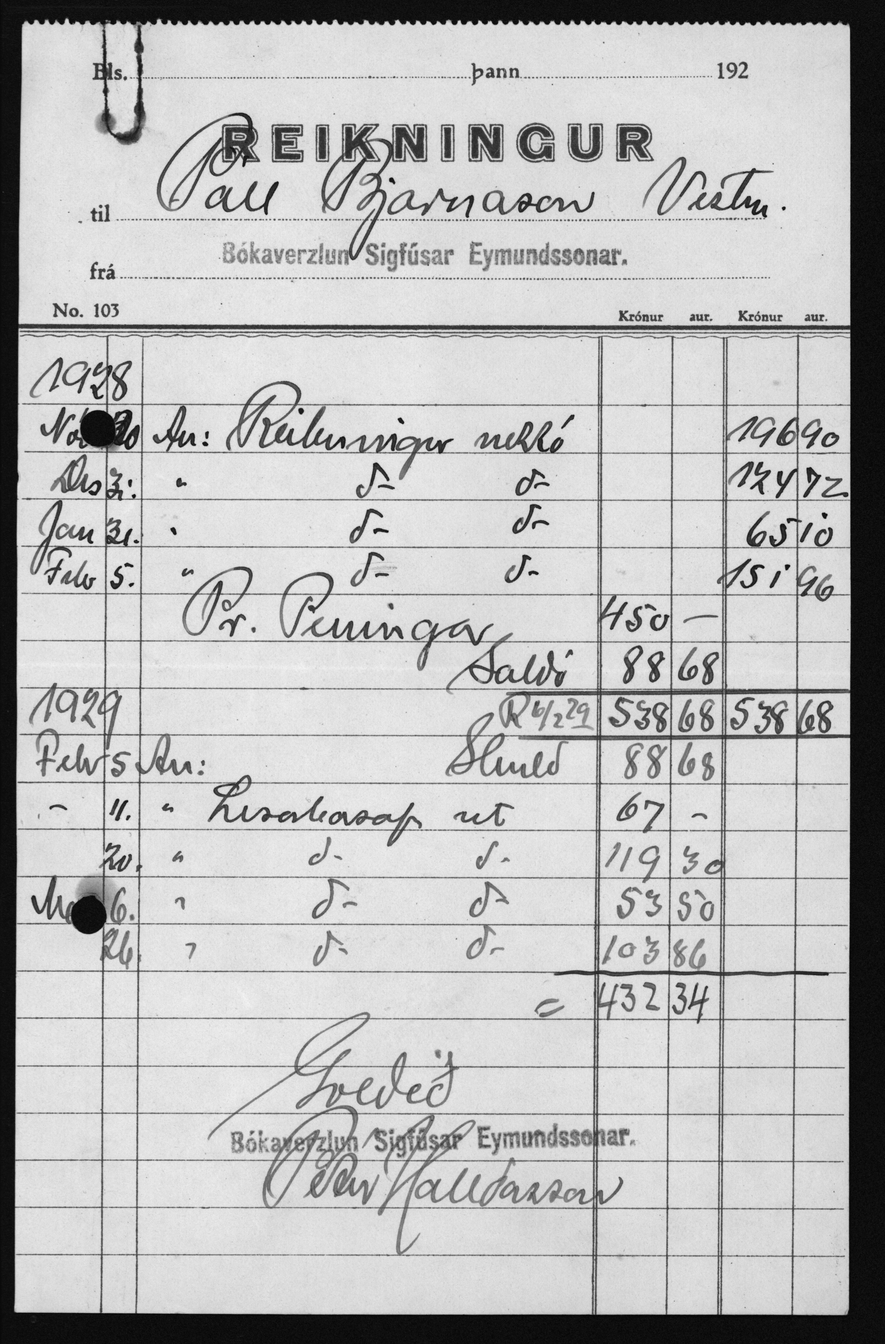 Bls. þann 192
REIKNINGUR
til Páll Bjarnason Vestm.
Bókaverzlun Sigfúsar Eymundssonar.
frá
No. 103 Krónur aur. Krónur aur.
1928
An: Reikningar nettó 196 90
Des 31. " d- d- 124 72
Jan 31. " d- d- 65 10
Febr 5. " d- d- 151 96
Pr. Peningar 450 —
Saldó 88 68
1929 538 68 538 68
Febr 5 An: Skuld 88 68
- 11. " út 67 -
20. " d- d- 119 30
6. " d- d- 53 50
26. " d- d- 103 86
= 432 34
Greidið
Bókaverzlun Sigfúsar Eymundssonar.
Pétur Halldórsson